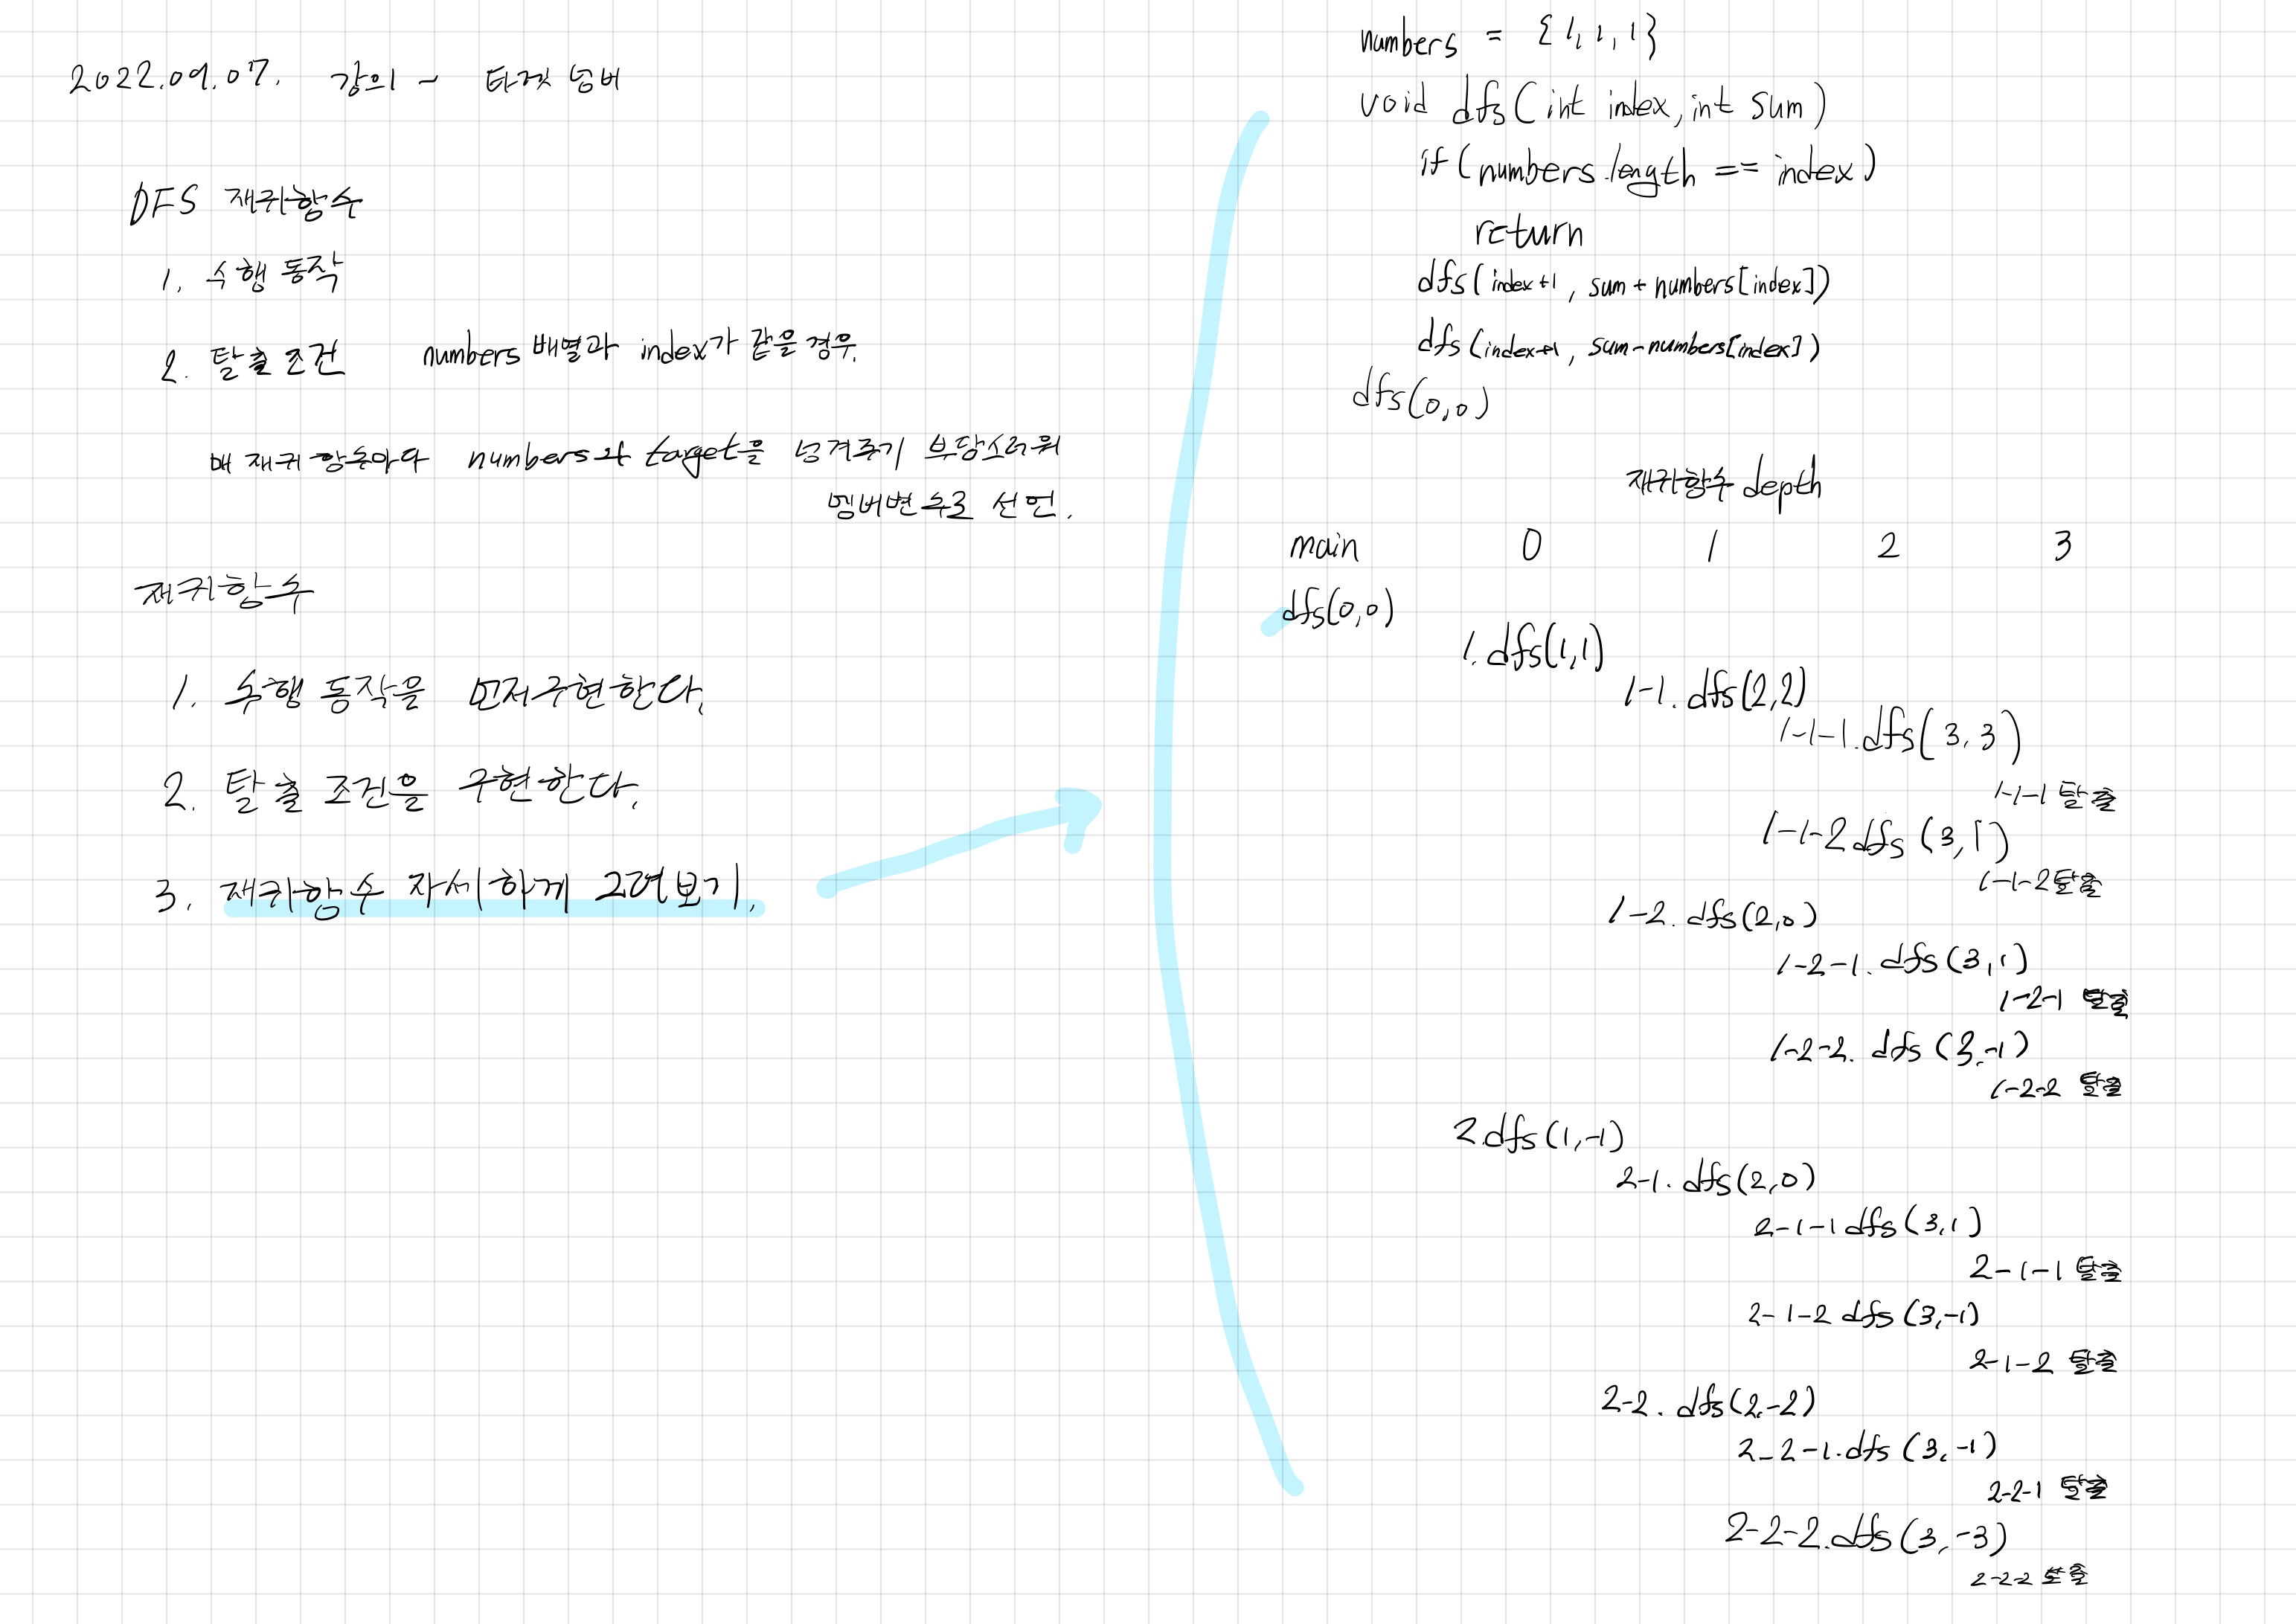 2022.09.07. 강의 - 타겟 넘버
DFS 재귀함수
1. 수행 동작
2. 탈출 조건 numbers 배열과 index가 같을 경우.
매 재귀 함수마다 numbers와 target을 넘겨주기 부담스러워
멤버변수로 선언.
재귀함수
1. 수행 동작을 먼저 구현한다.
2. 탈출 조건을 구현한다.
3. 재귀함수 자세하게 그려보기.
numbers = {1, 1, 1}
void dfs(int index, int sum)
if(numbers.length == index)
return
dfs(index+1, sum+numbers[index])
dfs(index+1, sum-numbers[index])
dfs(0,0)
재귀함수 depth
main 0 1 2 3
dfs(0,0)
1. dfs(1,1)
1-1. dfs(2,2)
1-1-1. dfs(3,3)
1-1-1 탈출
1-1-2 dfs(3,1)
1-1-2 탈출
1-2. dfs(2,0)
1-2-1. dfs(3,1)
1-2-1 탈출
1-2-2. dfs(3,-1)
1-2-2 탈출
2. dfs(1,-1)
2-1. dfs(2,0)
2-1-1 dfs(3,1)
2-1-1 탈출
2-1-2 dfs(3,-1)
2-1-2 탈출
2-2. dfs(2,-2)
2-2-1. dfs(3,-1)
2-2-1 탈출
2-2-2. dfs(3,-3)
2-2-2 탈출